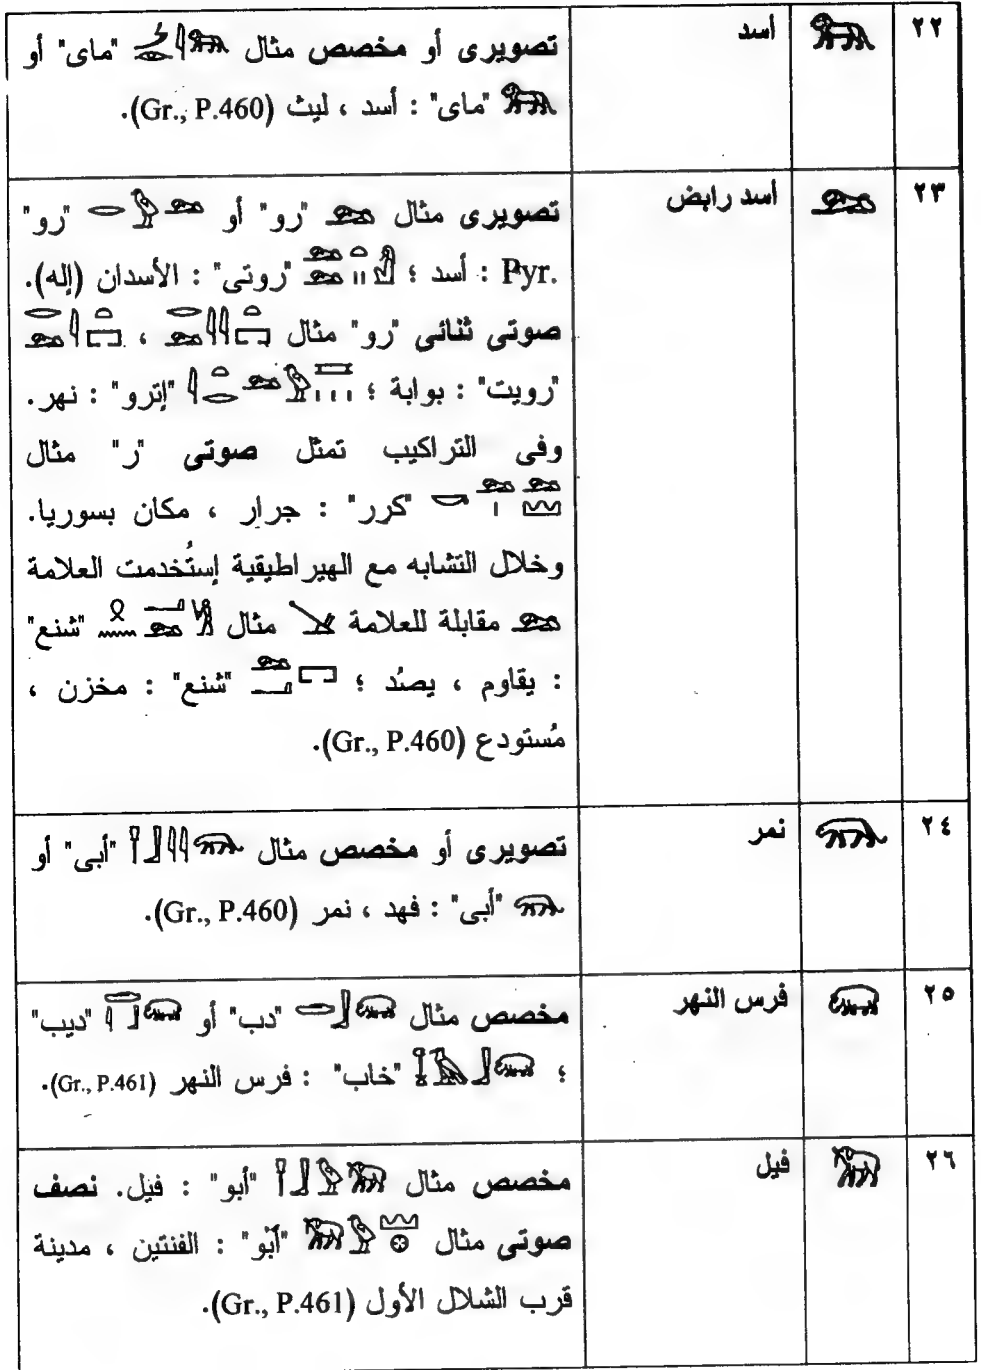 ٢٢ 𓃬 أسد تصويرى أو مخصص مثال 𓌳𓁹𓇋𓃬 "ماى" أو
𓃬 "ماى" : أسد ، ليث (Gr., P.460).
٢٣ 𓃭 أسد رابض تصويرى مثال 𓃭 "رو" أو 𓂋𓅱𓃭 "رو"
Pyr. : أسد ؛ "روتى" : الأسدان (إله).
صوتى ثنائى "رو" مثال ،
"رويت" : بوابة ؛ "إترو" : نهر.
وفى التراكيب تمثل صوتى "ر" مثال
"كرر" : جرار ، مكان بسوريا.
وخلال التشابه مع الهيراطيقية إستُخدمت العلامة
𓃭 مقابلة للعلامة مثال "شنع"
: يقاوم ، يصُد ؛ "شنع" : مخزن ،
مُستودع (Gr., P.460).
٢٤ نمر تصويرى أو مخصص مثال "أبى" أو
"أبى" : فهد ، نمر (Gr., P.460).
٢٥ 𓃯 فرس النهر مخصص مثال 𓂧𓃀𓃯 "دب" أو "ديب"
؛ "خاب" : فرس النهر (Gr., P.461).
٢٦ 𓃰 فيل مخصص مثال 𓍋𓃀𓅱𓃰 "أبو" : فيل. نصف
صوتى مثال 𓃰𓅱𓈊 "أبو" : الفنتين ، مدينة
قرب الشلال الأول (Gr., P.461).